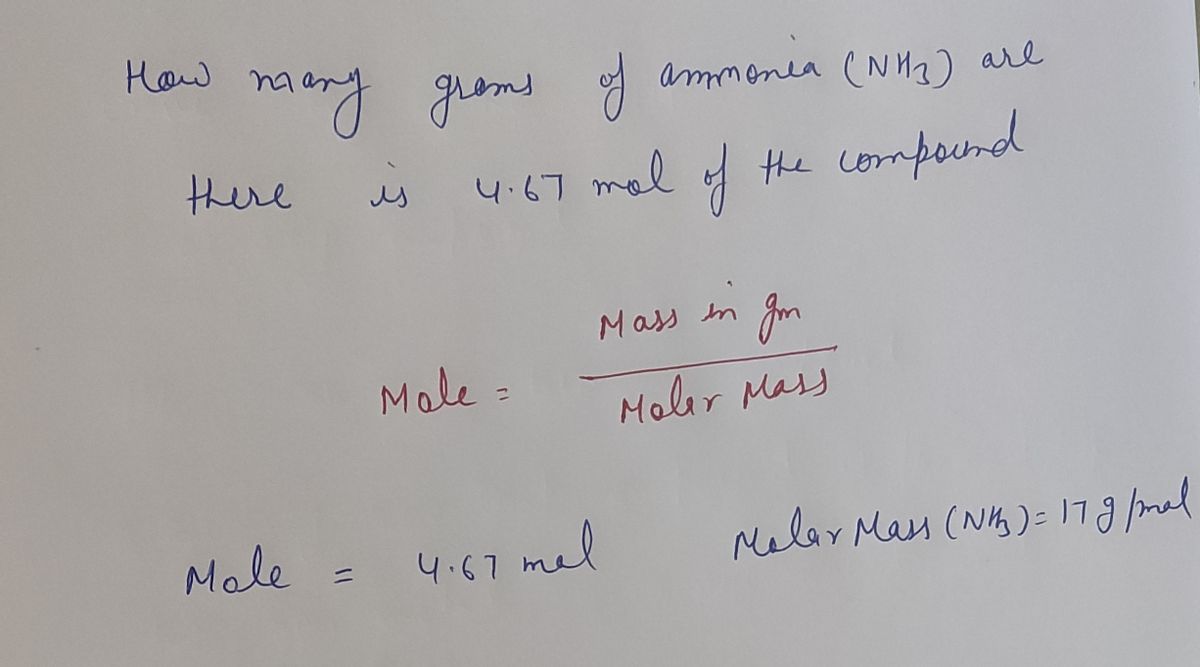 How many grams of ammonia (NH3) are
there is 4.67 mol of the compound
Mass in gm
Mole =
Molar Mass
Mole = 4.67 mol Molar Mass (NH3) = 17 g/mol